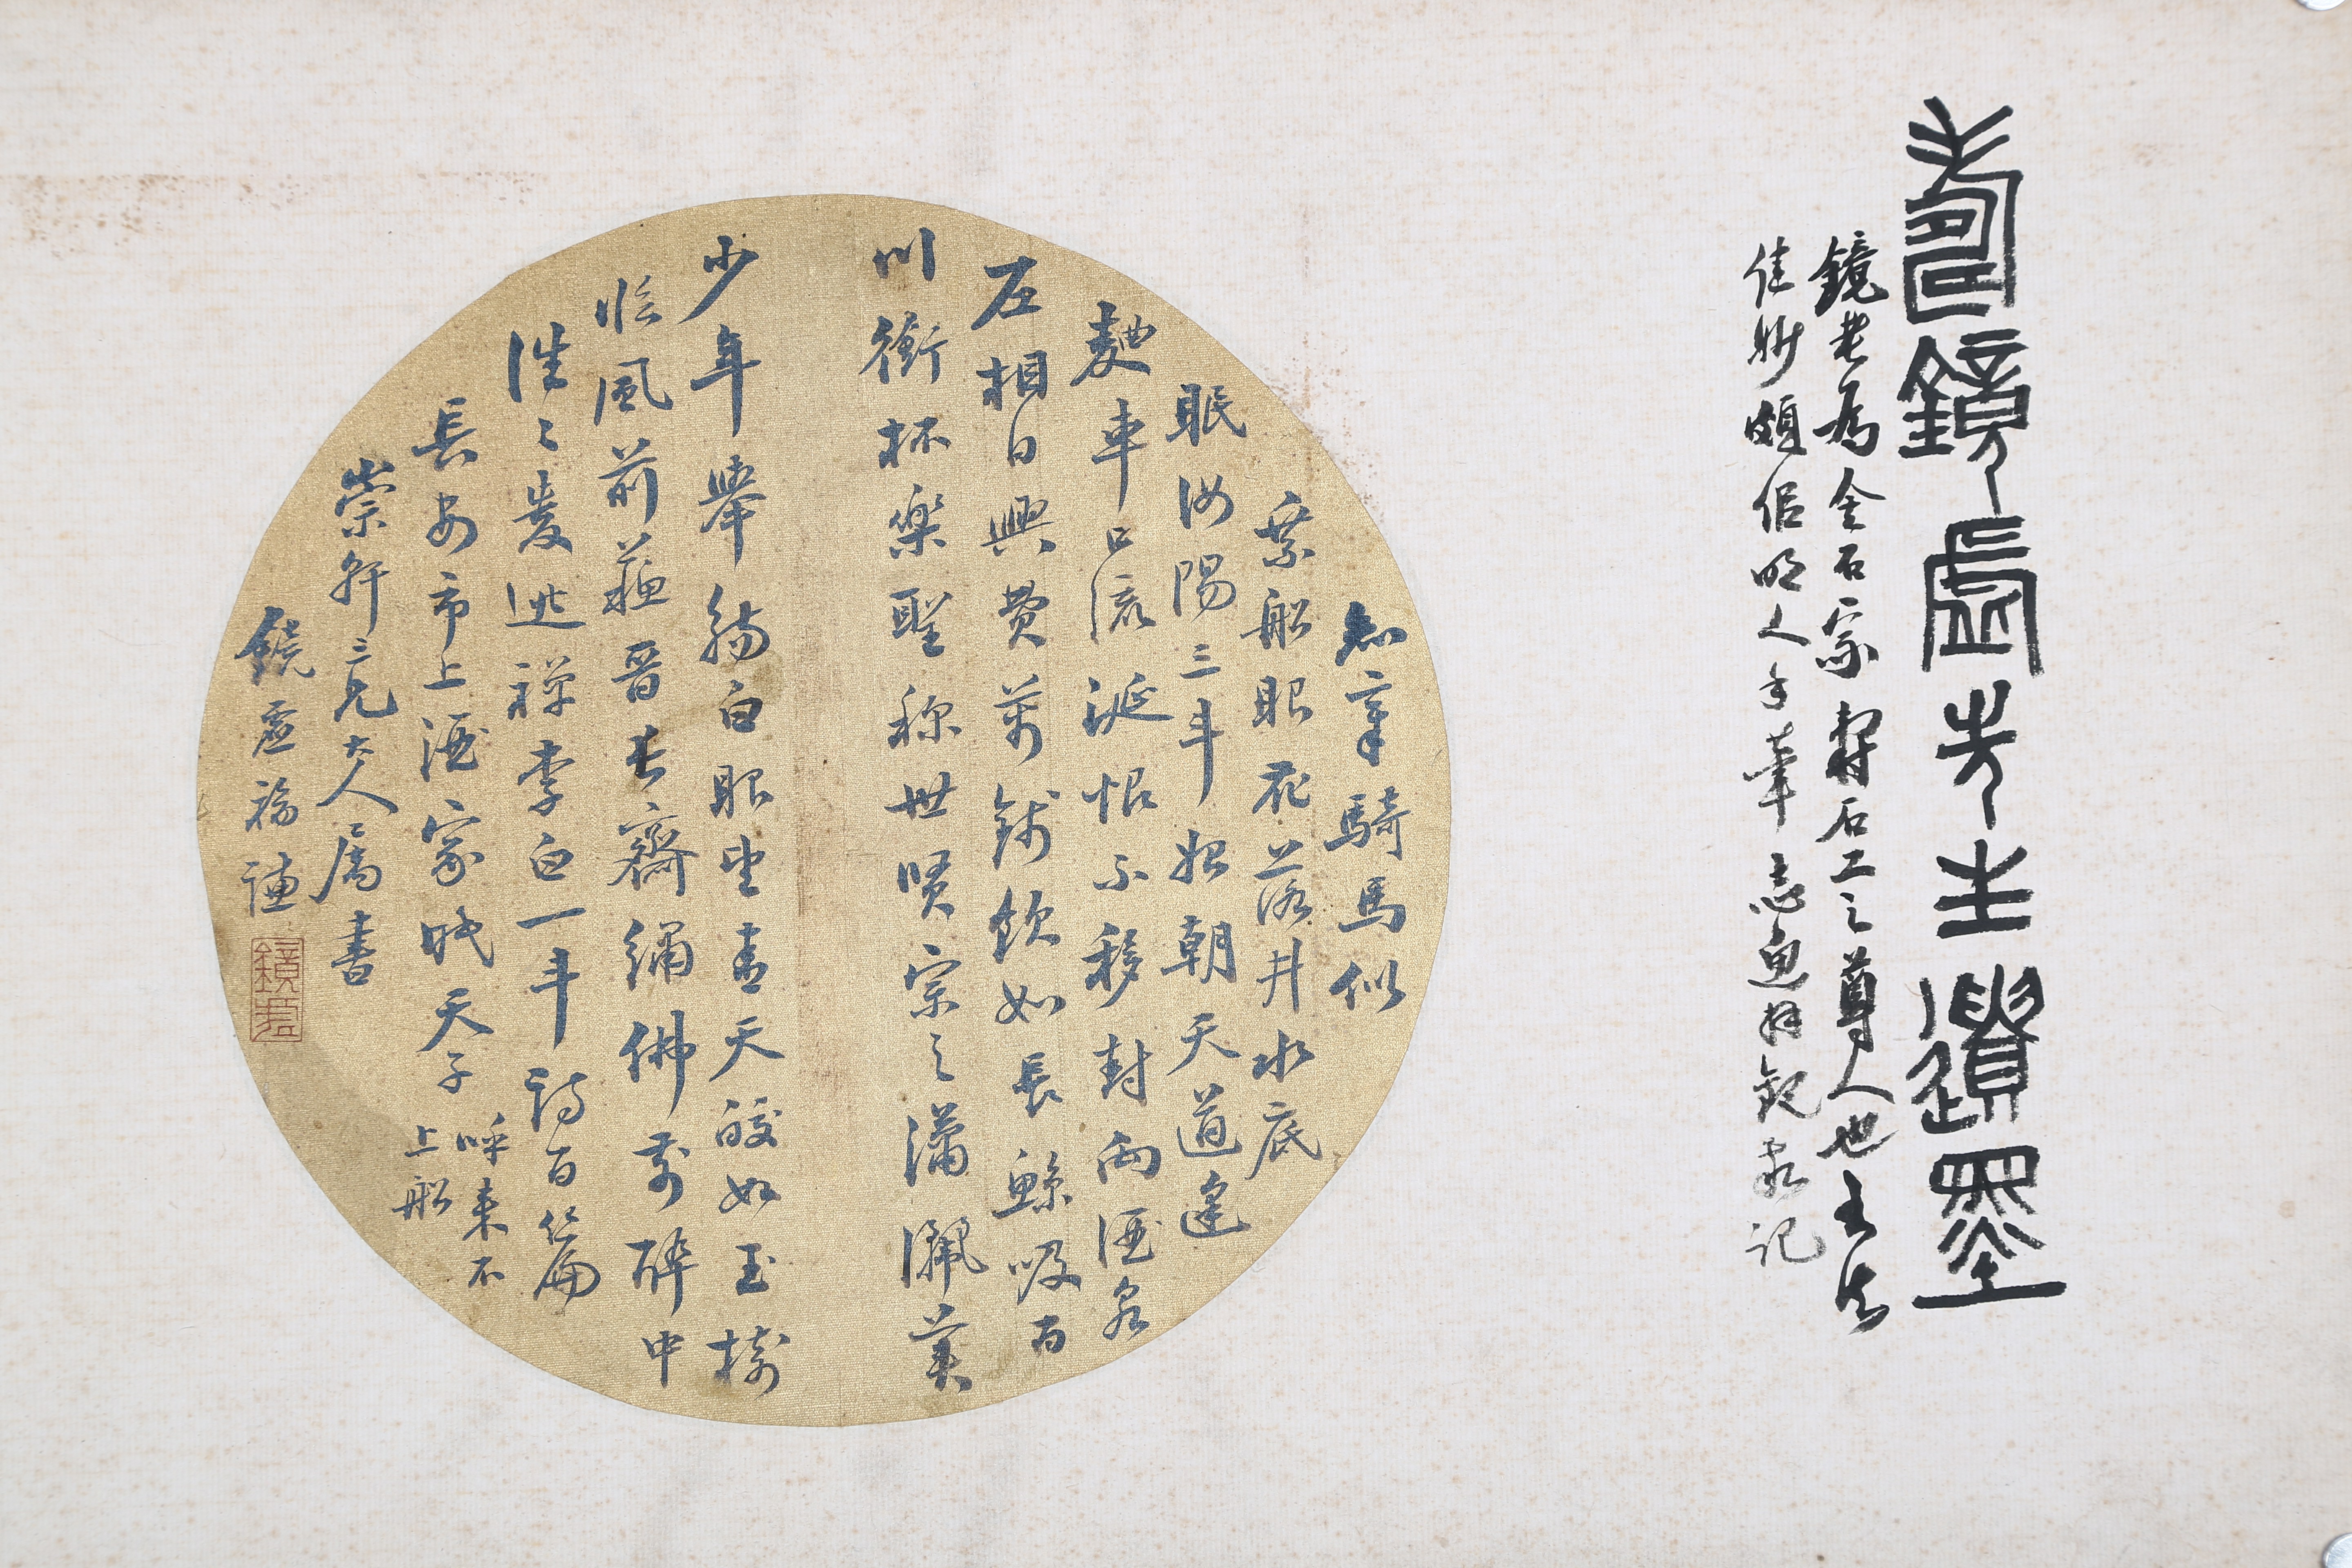 壽鏡虛先生遺墨
鏡老為金石家壽石工之尊人也書法
佳妙頗佀明人手筆拜觀敬記
知章騎馬似
乘船眼花落井水底
眠汝陽三斗始朝天道逢
麴車口流涎恨不移封向酒泉
左相日興費萬錢飲如長鯨吸百
川銜杯樂聖稱世賢宗之瀟灑美
少年舉觴白眼望青天皎如玉樹
臨風前蘇晉長齋繡佛前醉中
往〻愛逃禪李白一斗詩百篇
長安市上酒家眠天子呼來不
上船
崇軒三兄大人屬書
鏡虛福謙
鏡虛